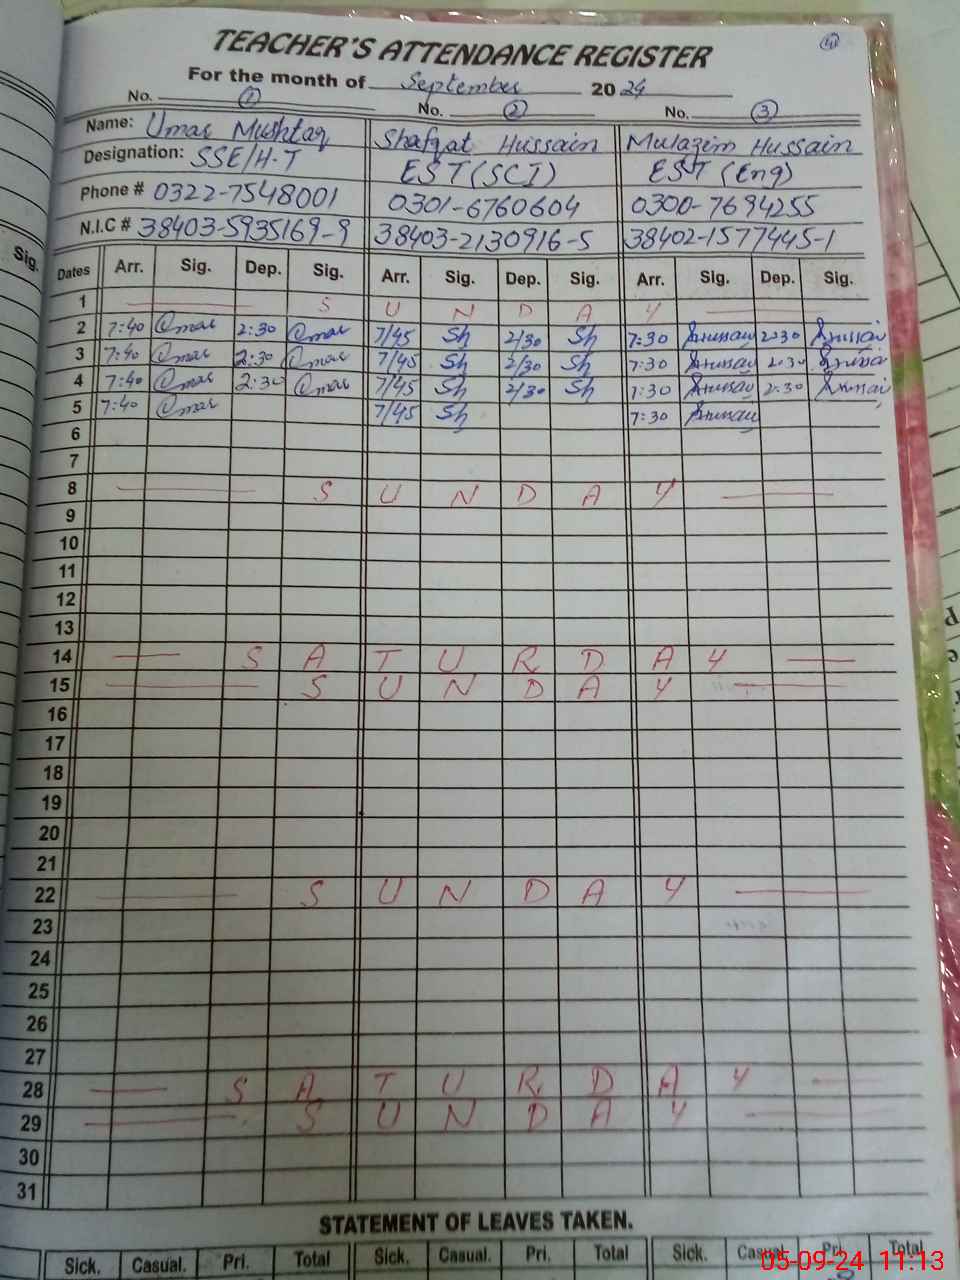 4
TEACHER'S ATTENDANCE REGISTER
For the month of September 2024
No. 1 No. 2 No. 3
Name: Umar Mushtaq Shafqat Hussain Mulazim Hussain
Designation: SSE/H-T EST (SCI) EST (Eng)
Phone # 0322-7548001 0301-6760604 0300-7694255
N.I.C # 38403-5935169-9 38403-2130916-5 38402-1577445-1
Sig.
Dates Arr. Sig. Dep. Sig. Arr. Sig. Dep. Sig. Arr. Sig. Dep. Sig.
1 S U N D A Y
2 7:40 Omar 2:30 Omar 7/45 Sh 2/30 Sh 7:30 2:30
3 7:40 Omar 2:30 Omar 7/45 Sh 2/30 Sh 7:30 2:30
4 7:40 Omar 2:30 Omar 7/45 Sh 2/30 Sh 7:30 2:30
5 7:40 Omar 7/45 Sh 7:30
6
7
8 S U N D A Y
9
10
11
12
13
14 S A T U R D A Y
15 S U N D A Y
16
17
18
19
20
21
22 S U N D A Y
23
24
25
26
27
28 S A T U R D A Y
29 S U N D A Y
30
31
STATEMENT OF LEAVES TAKEN.
Sick. Casual. Pri. Total Sick. Casual. Pri. Total Sick. Casual. Pri. Total
05-09-24 11:13